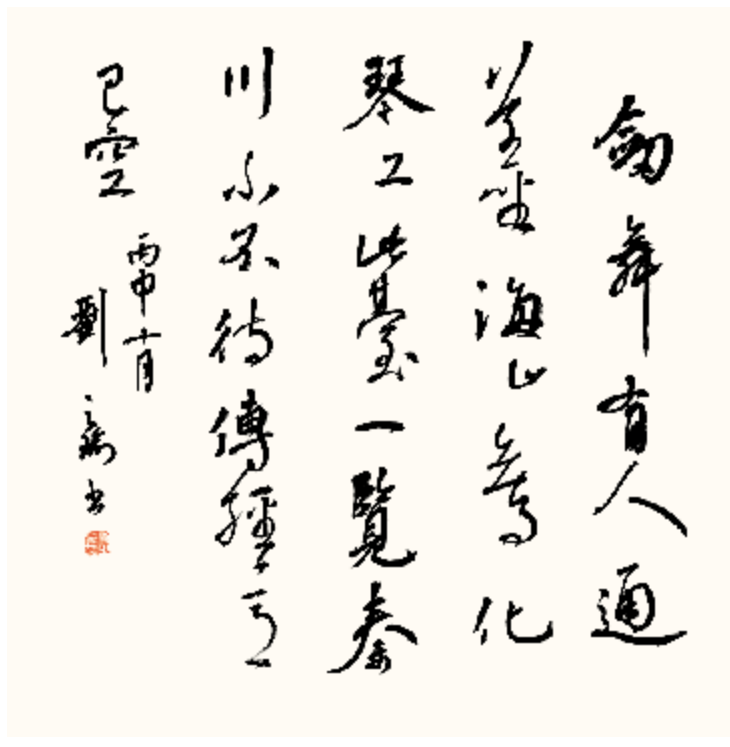 劒舞有人通
草聖海山無事化
琴工此臺一覽秦
川小不待傳經意
已空
丙申十月
劉 書